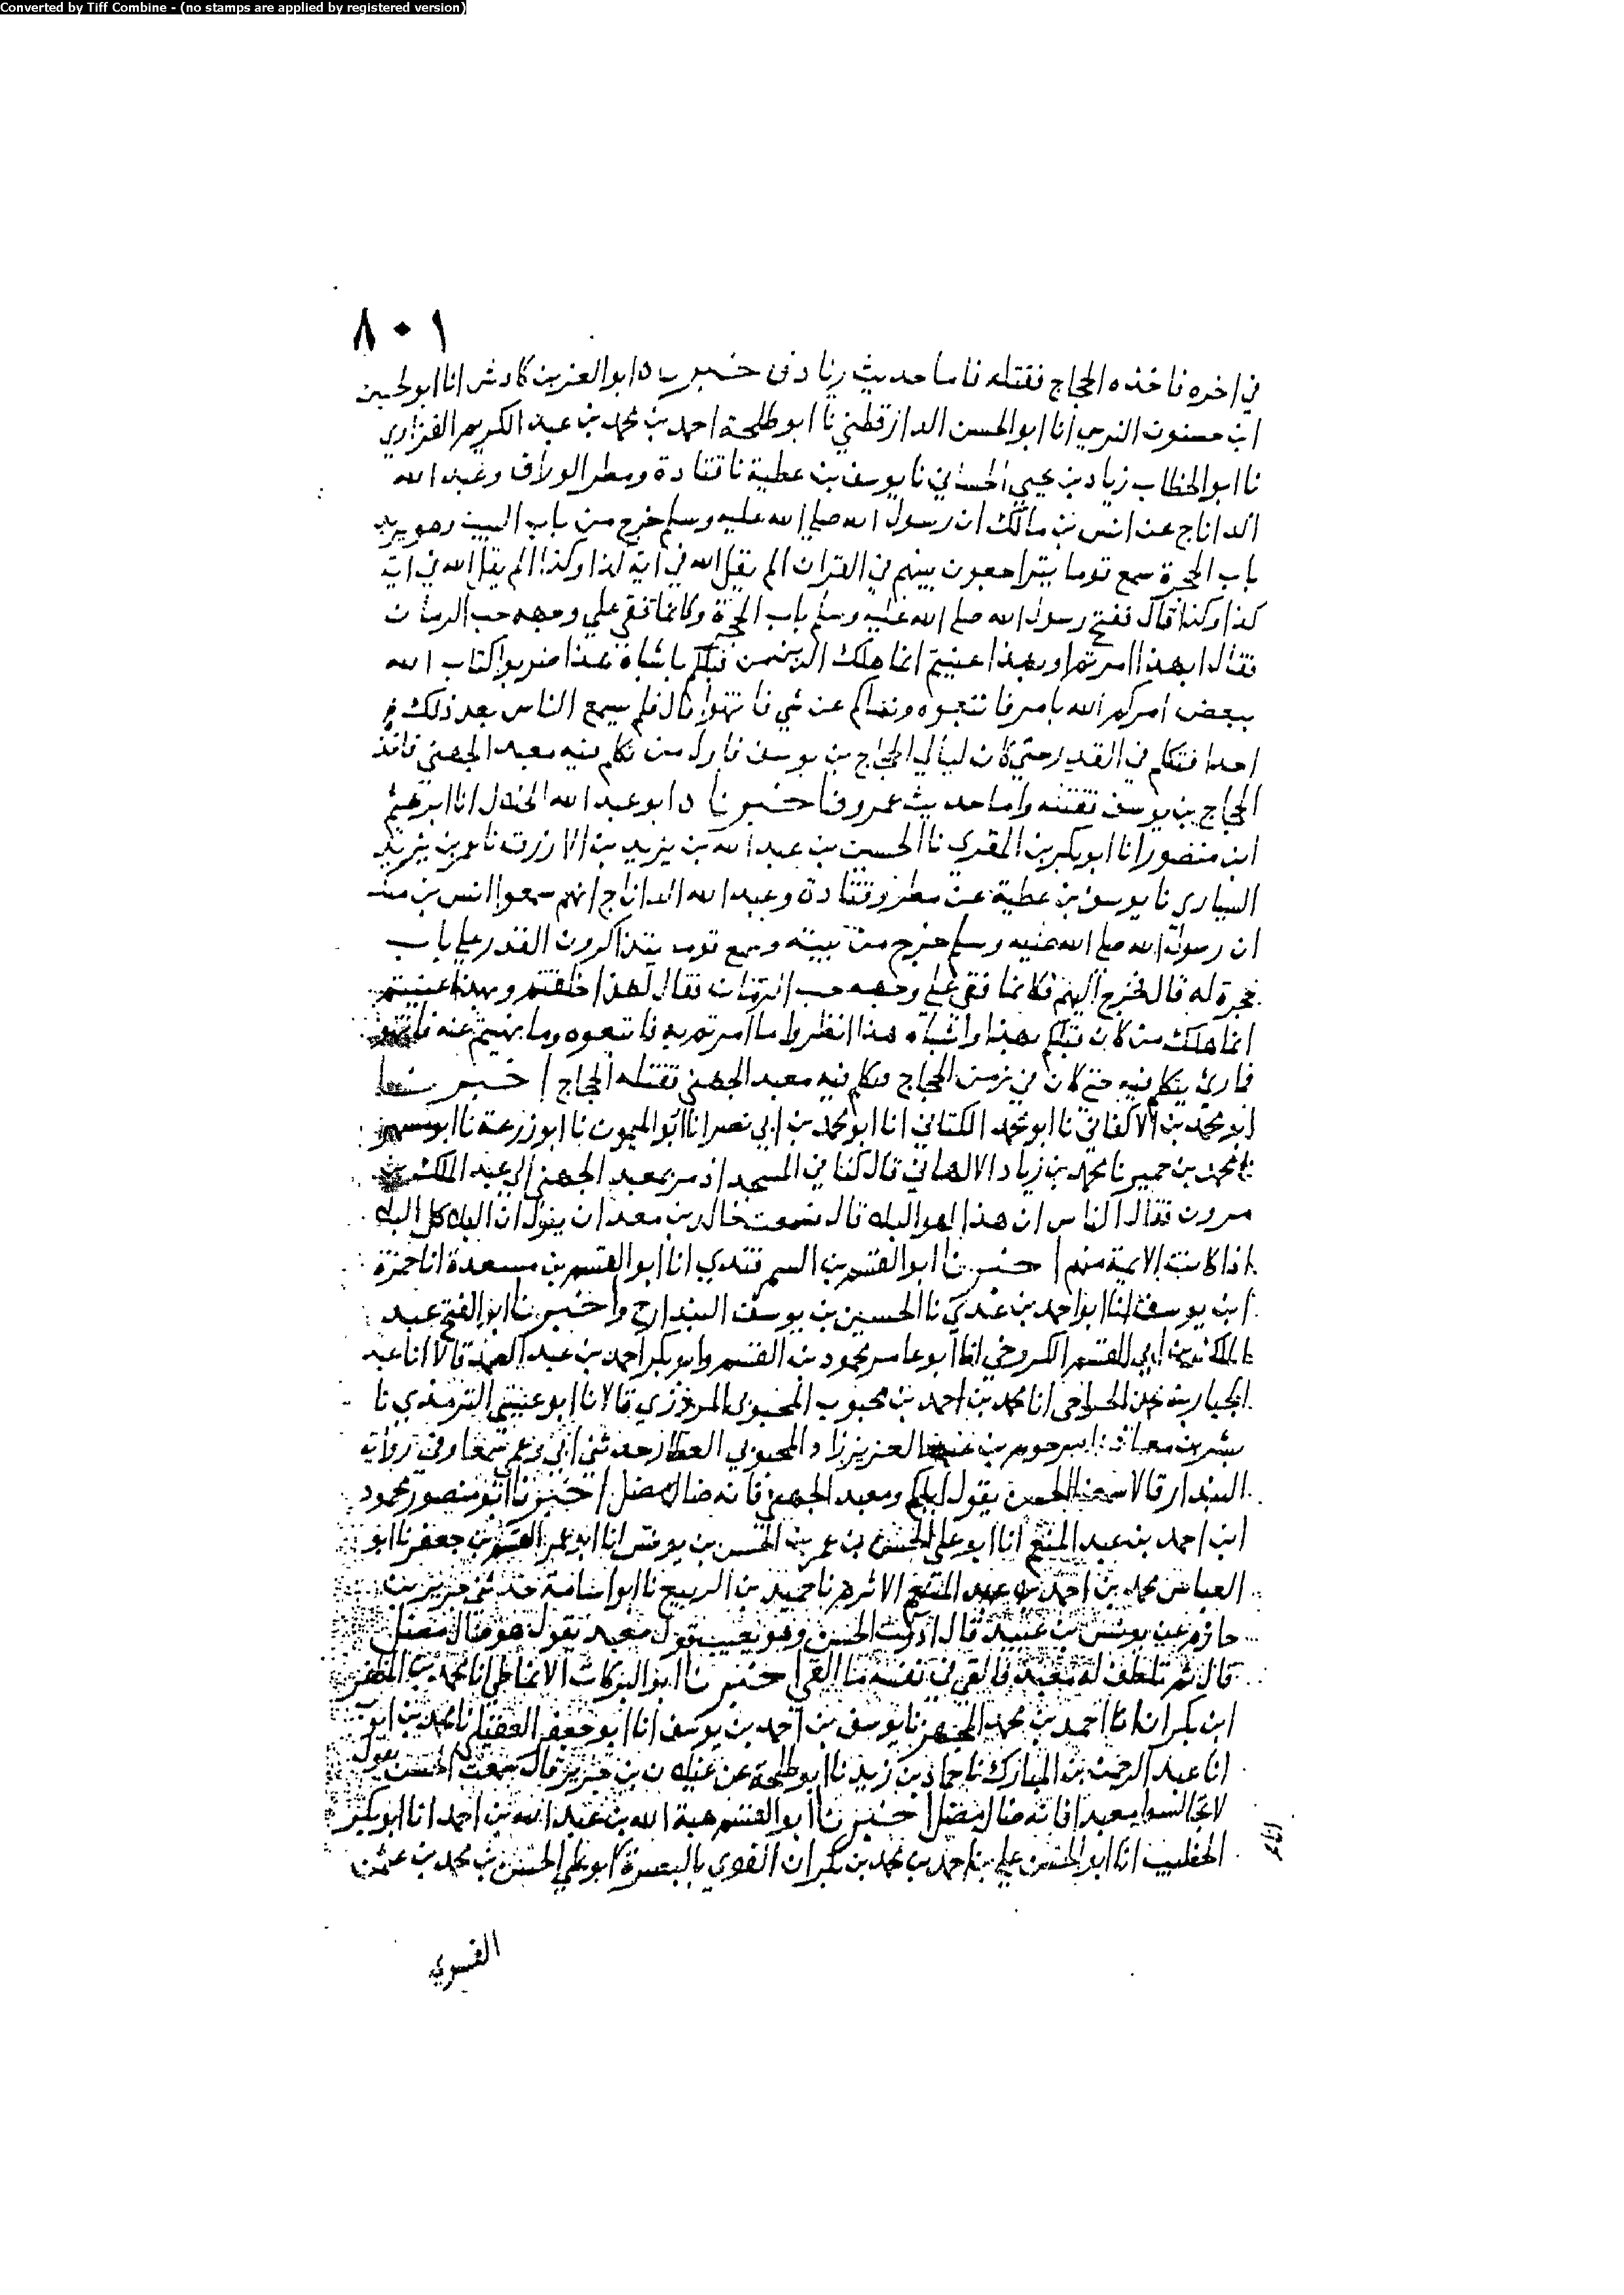 Converted by Tiff Combine - (no stamps are applied by registered version)
٨٠١
في اخره فاخذه الحجاج فقتله فاما حديث زياد فاخبرناه ابو العز بن كادش انا ابو الحسين
ابن حسنون النرسي انا ابو الحسن الدارقطني نا ابو طلحة احمد بن محمد بن عبد الكريم الفزاري
نا ابو الخطاب زياد بن يحيى الحساني نا يوسف بن عطية نا قتادة ومطر الوراق وعبد الله
الداناج عن انس بن مالك ان رسول الله صلى الله عليه وسلم خرج من باب البيت وهو يريد
باب الحجرة سمع قوما يتراجعون بينهم في القران الم يقل الله في اية كذا وكذا الم يقل الله في اية
كذا وكذا قال ففتح رسول الله صلى الله عليه وسلم باب الحجرة وكانما فقي على وجهه حب الرمان
فقال ابهذا امرتم او بهذا عنيتم انما هلك الذين من قبلكم باشباه هذا ضربوا كتاب الله
ببعض امركم الله بامر فاتبعوه ونهاكم عن شي فانتهوا قال فلم يسمع الناس بعد ذلك
احدا فتكلم في القدر حتى كان ليالي الحجاج بن يوسف فاول من تكلم فيه معبد الجهني فاخذه
الحجاج بن يوسف فقتله واما حديث عمرو فاخبرناه ابو عبد الله الخلال انا ابرهيم
ابن منصور انا ابو بكر بن المقري نا الحسين بن عبد الله بن يزيد بن الازرق نا عمرو بن يزيد
السياري نا يوسف بن عطية عن مطر وقتادة وعبد الله الداناج انهم سمعوا انس بن
ان رسول الله صلى الله عليه وسلم خرج من بيته وسمع قوما يتذاكرون القدر على باب
حجرة له قال فخرج اليهم فكانما فقي على وجهه حب الرمان فقال لهذا خلقتم وبهذا عنيتم
انما هلك من كان قبلكم بهذا واشباه هذا انظروا ما امرتم به فاتبعوه وما نهيتم عنه فانتهوا
فما رئي يتكلم فيه حتى كان في زمن الحجاج فتكلم فيه معبد الجهني فقتله الحجاج اخبرنا
ابو محمد بن الاكفاني نا ابو محمد الكتاني انا ابو محمد بن ابي نصر انا ابو الميمون نا ابو زرعة نا ابو مسهر
نا محمد بن حمير نا محمد بن زياد الالهاني قال كنا في المسجد اذ مر بمعبد الجهني الى عبد الملك بن
مرون فقال الناس ان هذا لهو البلاء قال فسمعت خالد بن معدان يقول ان البلاء كل البلاء
اذا كانت الايمة منهم اخبرنا ابو القسم بن السمرقندي انا ابو القسم بن مسعدة انا حمزة
ابن يوسف انا ابو احمد بن عدي نا الحسين بن يوسف البندار ح واخبرنا ابو الفتح عبد
الملك بن ابي القسم الكروخي انا ابو عامر محمود بن القسم وابو بكر احمد بن عبد الصمد قالا انا عبد
الجبار بن محمد الجراحي انا محمد بن احمد بن محبوب المحبوبي المروزي قالا نا ابو عيسى الترمذي نا
بشر بن معاذ نا مرحوم بن عبد العزيز زاد المحبوبي العطار حدثني ابي وعمي سمعا وفي رواية
البندار قالا سمعنا الحسن يقول اياكم ومعبد الجهني فانه ضال مضل اخبرنا ابو منصور محمود
ابن احمد بن عبد المنعم انا ابو علي الحسن بن عمر بن الحسن بن يونس انا ابو عمر القسم بن جعفر نا ابو
العباس محمد بن احمد بن الاثرم نا حميد بن الربيع نا ابو اسامة حدثني جرير بن
حازم عن يونس بن عبيد قال ادركت الحسن وهو يعيب قول معبد يقول هو ضال مضل
قال ثم تلطف له معبد فالقى في نفسه ما القى اخبرنا ابو البركات الانماطي انا محمد بن المظفر
ابن بكران انا احمد بن محمد نا يوسف بن احمد بن يوسف انا ابو جعفر العقيلي نا محمد بن ايوب
انا عبد الرحمن بن المبارك نا حماد بن زيد نا ابو طلحة عن غيلان بن جرير قال سمعت الحسن يقول
لا تجالسوا معبدا فانه ضال مضل اخبرنا ابو القسم هبة الله بن عبد الله بن احمد انا ابو بكر
الخطيب انا ابو الحسن علي بن احمد بن محمد بن بكران الفوي بالبصرة نا ابو علي الحسن بن محمد بن عثمن
الفسوي